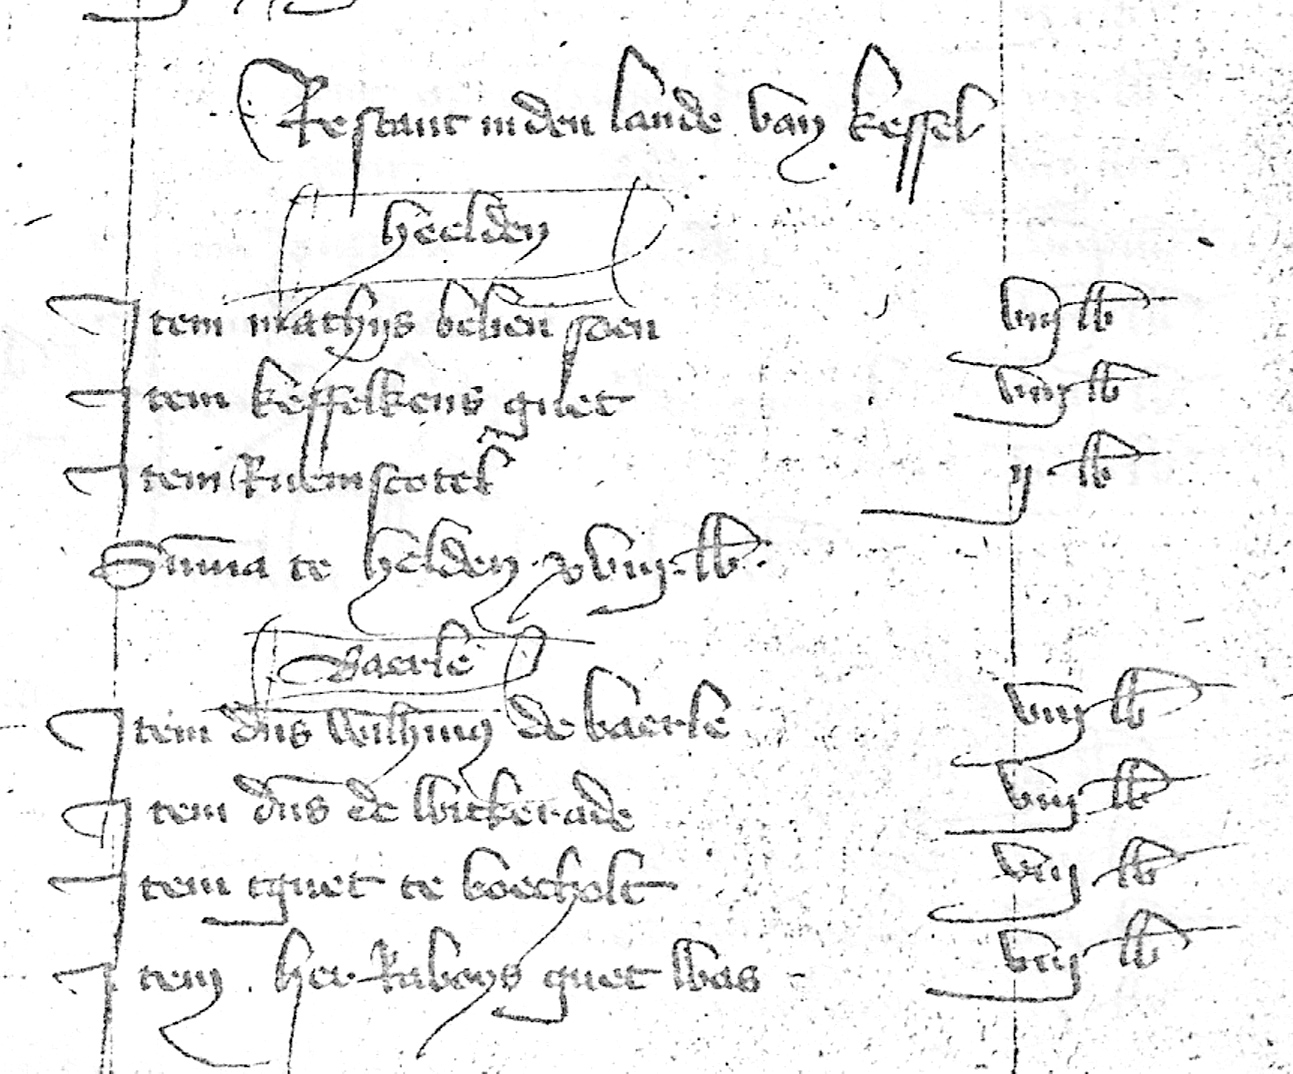 Restant inden lande van kessel
heelden
Item mathijs belien soen viij lb
Item kesselkens guet viij lb
Item Ruemscotel ij lb
Summa te helden xviij lb
Baerle
Item dns Wilhmus de baerle viij lb
Item dns de wickerade viij lb
Item tguet te boecholt viij lb
Item her Rabods guet was viij lb